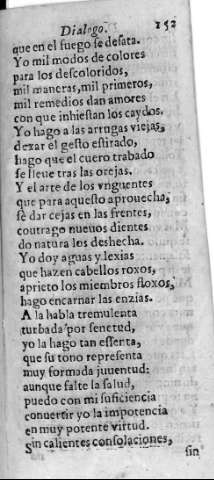 Dialogo. 152
que en el fuego se desata.
Yo mil modos de colores
para los descoloridos,
mil maneras, mil primores,
mil remedios dan amores
con que inhiestan los caydos.
Yo hago a las arrugas viejas,
dexar el gesto estirado,
hago que el cuero trabado
se lleue tras las orejas.
Y el arte de los vnguentes
que para aquesto aprouecha,
se dar cejas en las frentes,
contrago nueuos dientes
do natura los deshecha.
Yo doy aguas y lexias
que hazen cabellos roxos,
aprieto los miembros floxos,
hago encarnar las enzias.
A la habla tremulenta
turbada por senetud,
yo la hago tan essenta,
que su tono representa
muy formada juuentud:
aunque falte la salud,
puedo con mi suficiencia
conuertir yo la impotencia
en muy potente virtud.
Sin calientes consolaciones,
sin